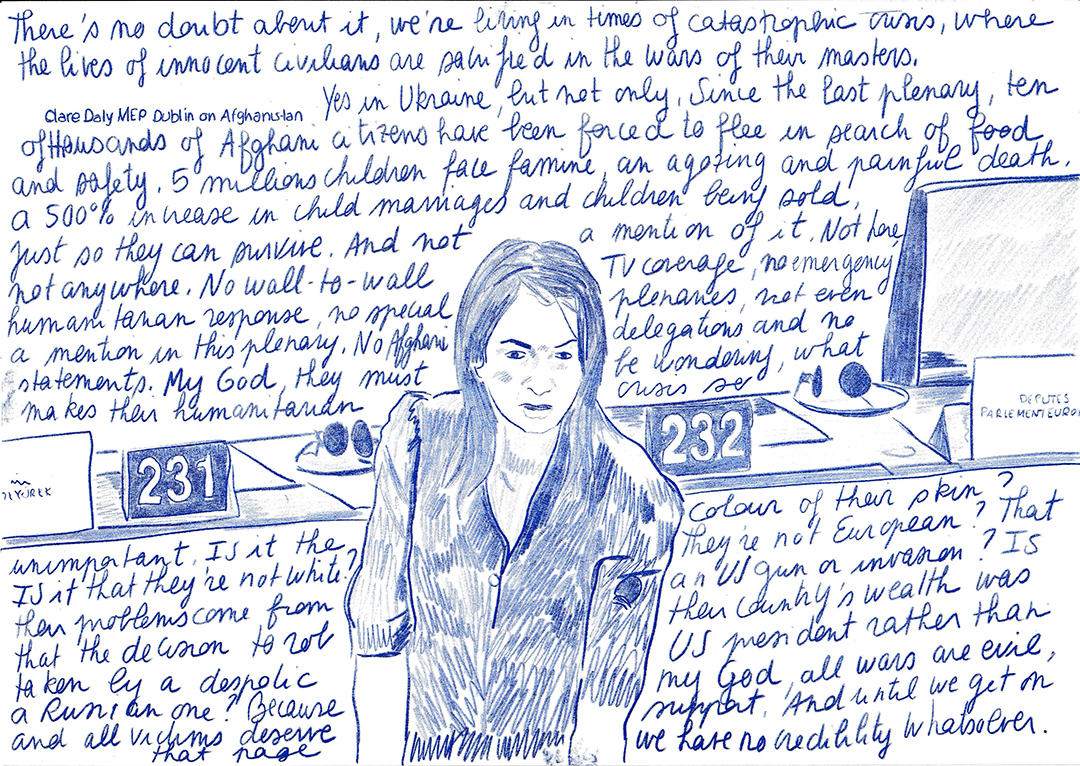 There's no doubt about it, we're living in times of catastrophic crisis, where
the lives of innocent civilians are sacrified in the wars of their masters.
Yes in Ukraine, but not only. Since the last plenary, ten
Clare Daly MEP Dublin on Afghanistan
of thousands of Afghani citizens have been forced to flee in search of food
and safety. 5 millions children face famine, an agozing and painful death.
a 500% increase in child marriages and children being sold,
just so they can survive. And not a mention of it. Not here,
not anywhere. No wall-to-wall TV coverage, no emergency
humanitarian response, no special plenaries, not even
a mention in this plenary. No Afghani delegations and no
statements. My God, they must be wondering, what
makes their humanitarian crisis so
231
232
DEPUTES
PARLEMENT EUROP
unimportant. Is it the colour of their skin?
Is it that they're not white? They're not European? That
their problems come from an US gun or invasion? Is
that the decision to rob their country's wealth was
taken by a despotic US president rather than
a Russian one? Because my God, all wars are evil,
and all victims deserve support. And until we get on
that page we have no credibility whatsoever.